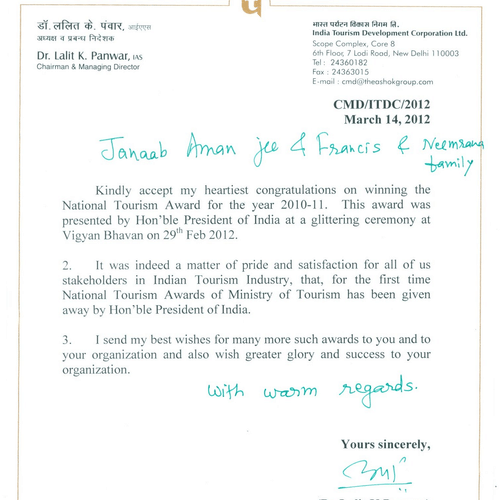 डॉ. ललित के. पंवार, आईएएस
अध्यक्ष व प्रबन्ध निदेशक
Dr. Lalit K. Panwar, IAS
Chairman & Managing Director
भारत पर्यटन विकास निगम लि.
India Tourism Development Corporation Ltd.
Scope Complex, Core 8
6th Floor, 7 Lodi Road, New Delhi 110003
Tel : 24360182
Fax : 24363015
E-mail : cmd@theashokgroup.com
CMD/ITDC/2012
March 14, 2012
Janaab Aman jee & Francis & Neemrana
family
Kindly accept my heartiest congratulations on winning the
National Tourism Award for the year 2010-11. This award was
presented by Hon'ble President of India at a glittering ceremony at
Vigyan Bhavan on 29th Feb 2012.
2. It was indeed a matter of pride and satisfaction for all of us
stakeholders in Indian Tourism Industry, that, for the first time
National Tourism Awards of Ministry of Tourism has been given
away by Hon'ble President of India.
3. I send my best wishes for many more such awards to you and to
your organization and also wish greater glory and success to your
organization.
With warm regards.
Yours sincerely,